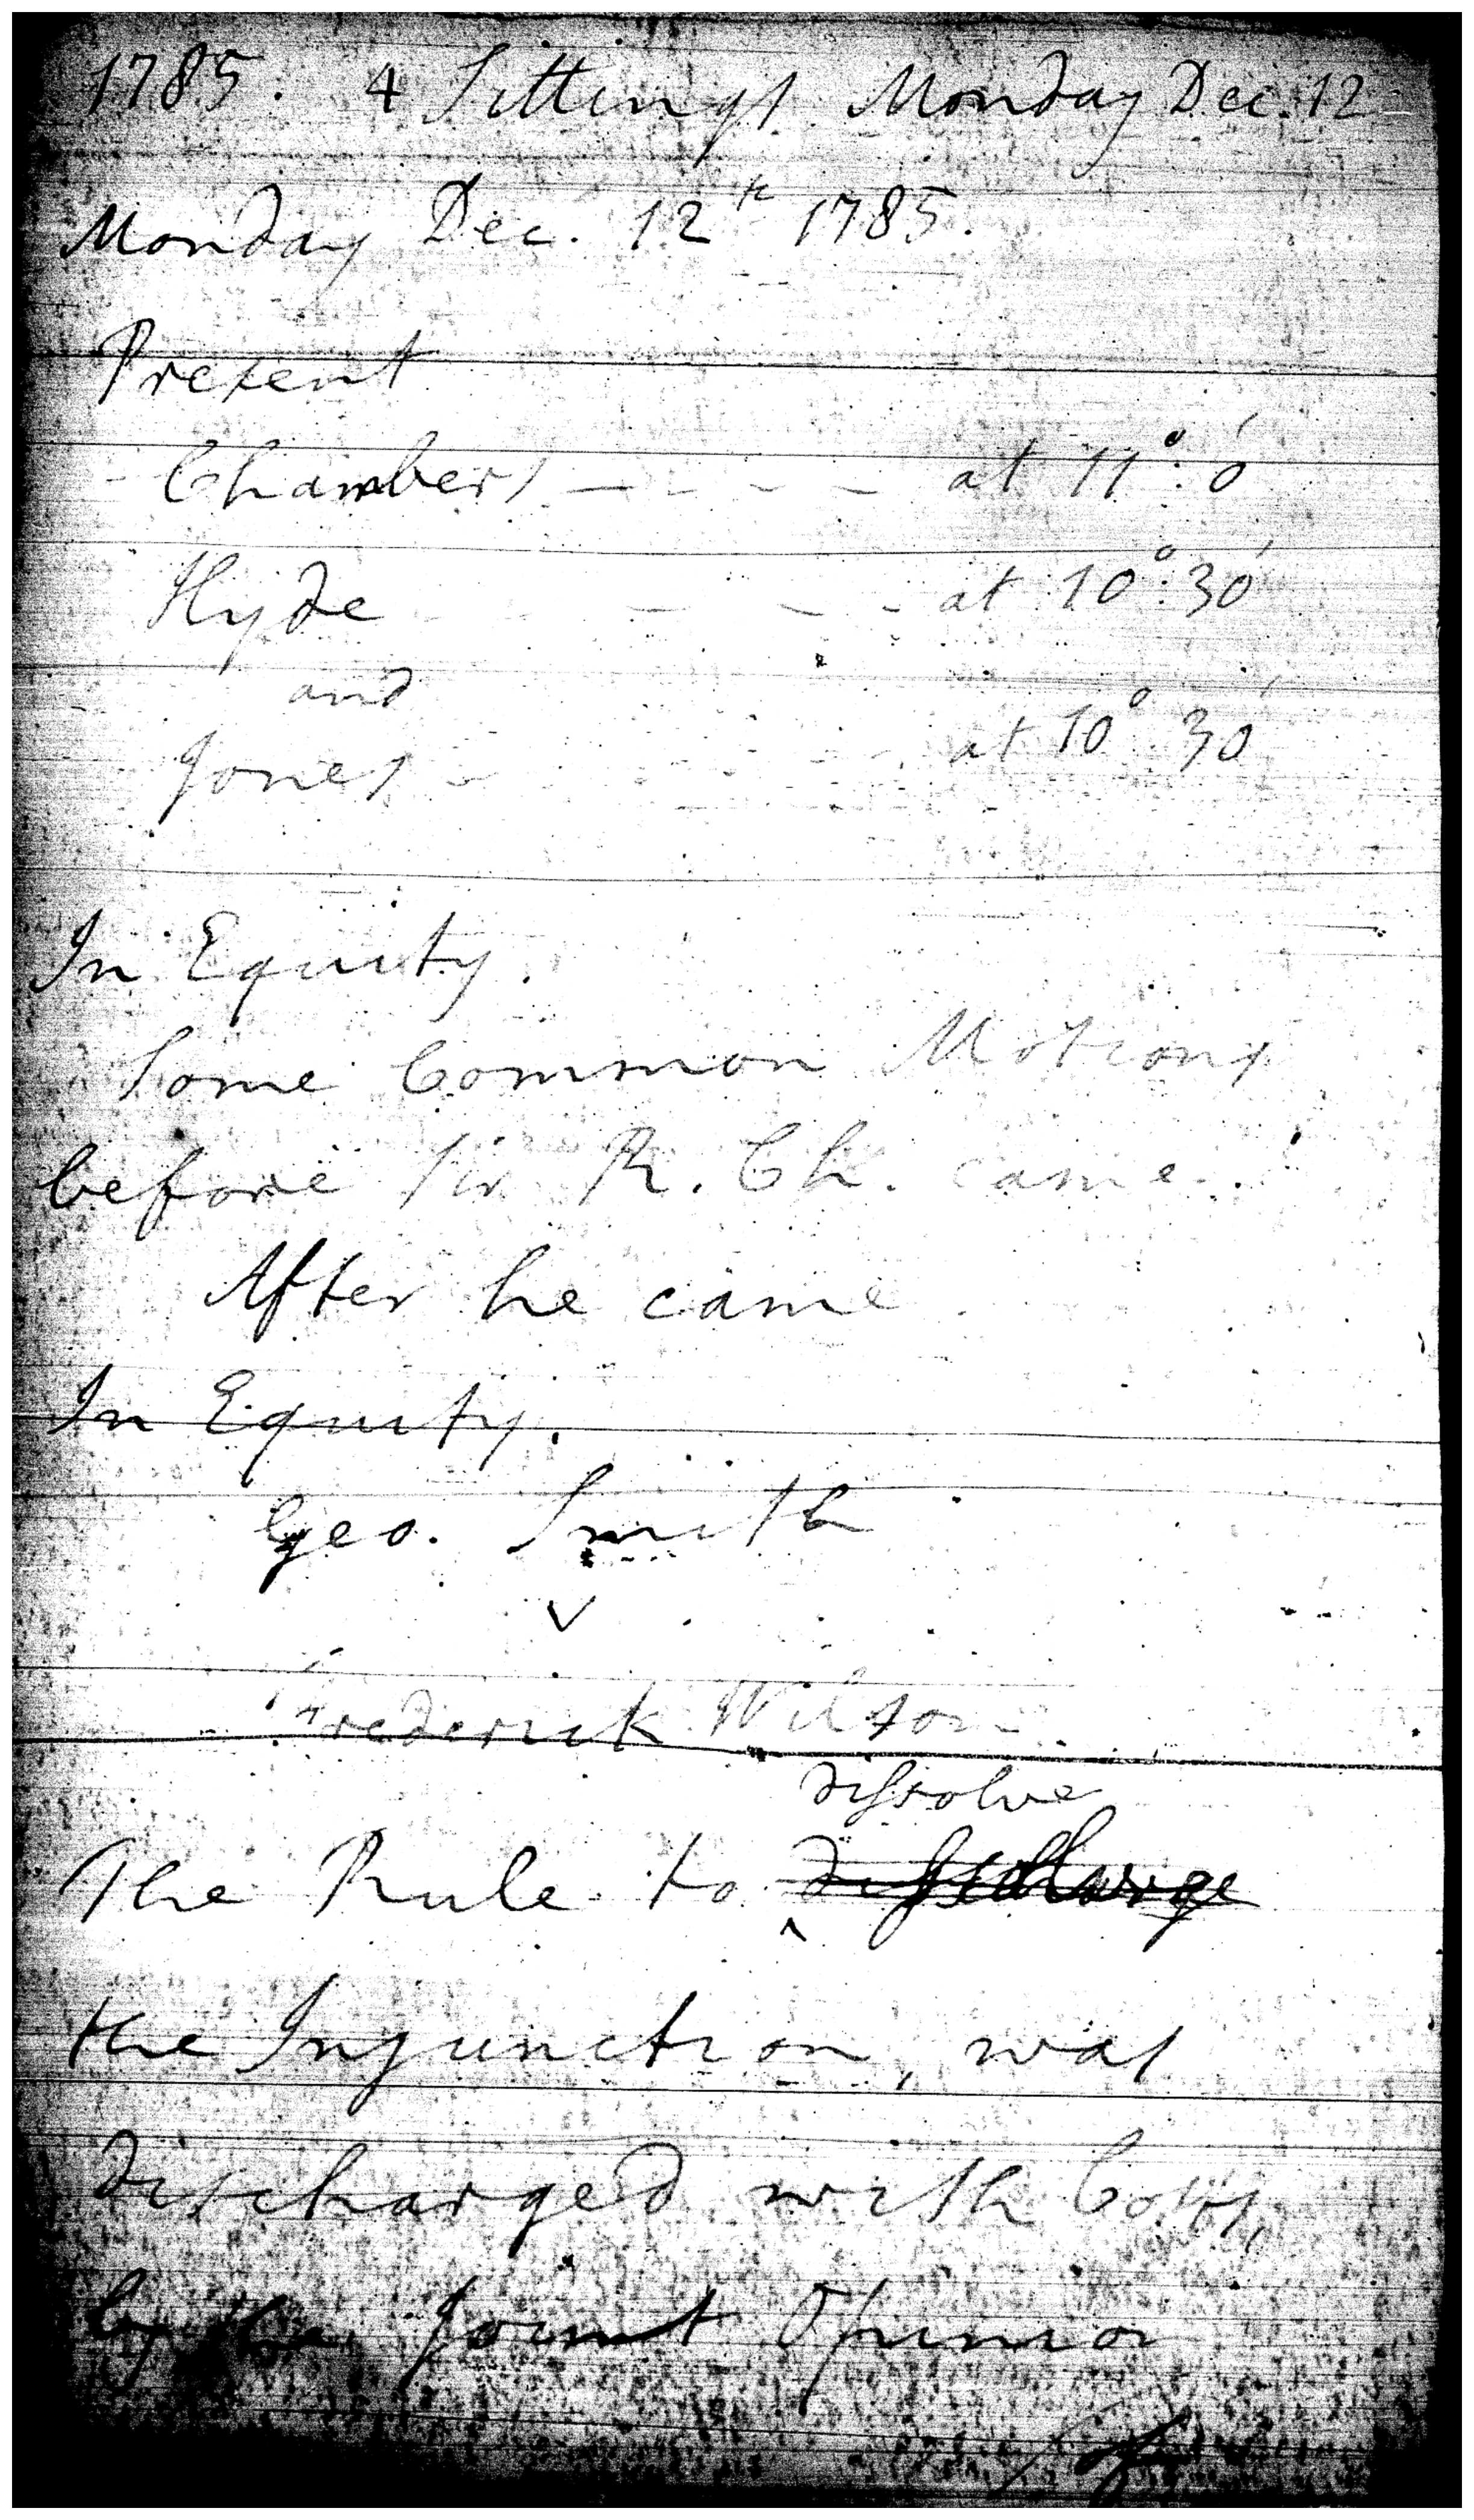 1785. 4 Sittings Monday Dec. 12
Monday Dec. 12th 1785.
Present
Chambers - - - - at 11°: 0'
Hyde - - - at 10°: 30'
and
Jones - - - at 10° 30'
In Equity.
Some Common Motions
before Sir R. Ch. came.
After he came
In Equity.
Geo. Smith
v
Frederick Wilson
dissolve
The Rule to discharge
^
the Injunction, was
discharged with Costs,
by the Joint Opinion